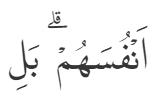 اَنْفُسَهُمْ ۗ بَلِ